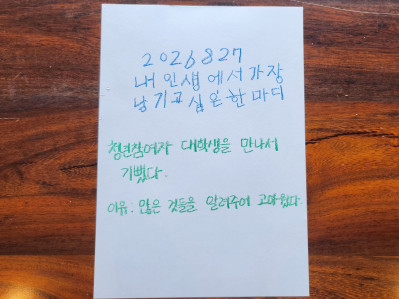 2026827
내 인생에서 가장
남기고 싶은 한마디
청년참여자 대학생을 만나서
기뻤다.
이유: 많은 것들을 알려주어 고마웠다.